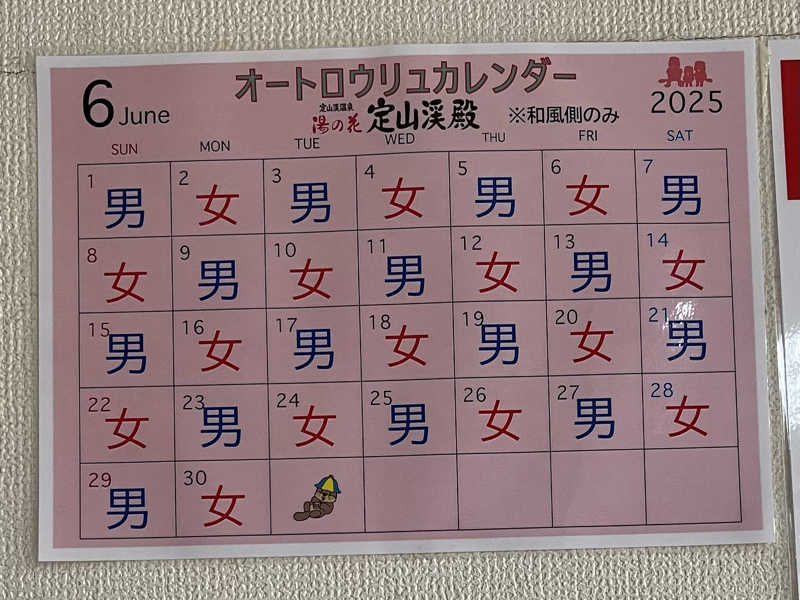 オートロウリュカレンダー
6 June
定山渓温泉
湯の花 定山渓殿 ※和風側のみ 2025
SUN MON TUE WED THU FRI SAT
1 男 2 女 3 男 4 女 5 男 6 女 7 男
8 女 9 男 10 女 11 男 12 女 13 男 14 女
15 男 16 女 17 男 18 女 19 男 20 女 21 男
22 女 23 男 24 女 25 男 26 女 27 男 28 女
29 男 30 女